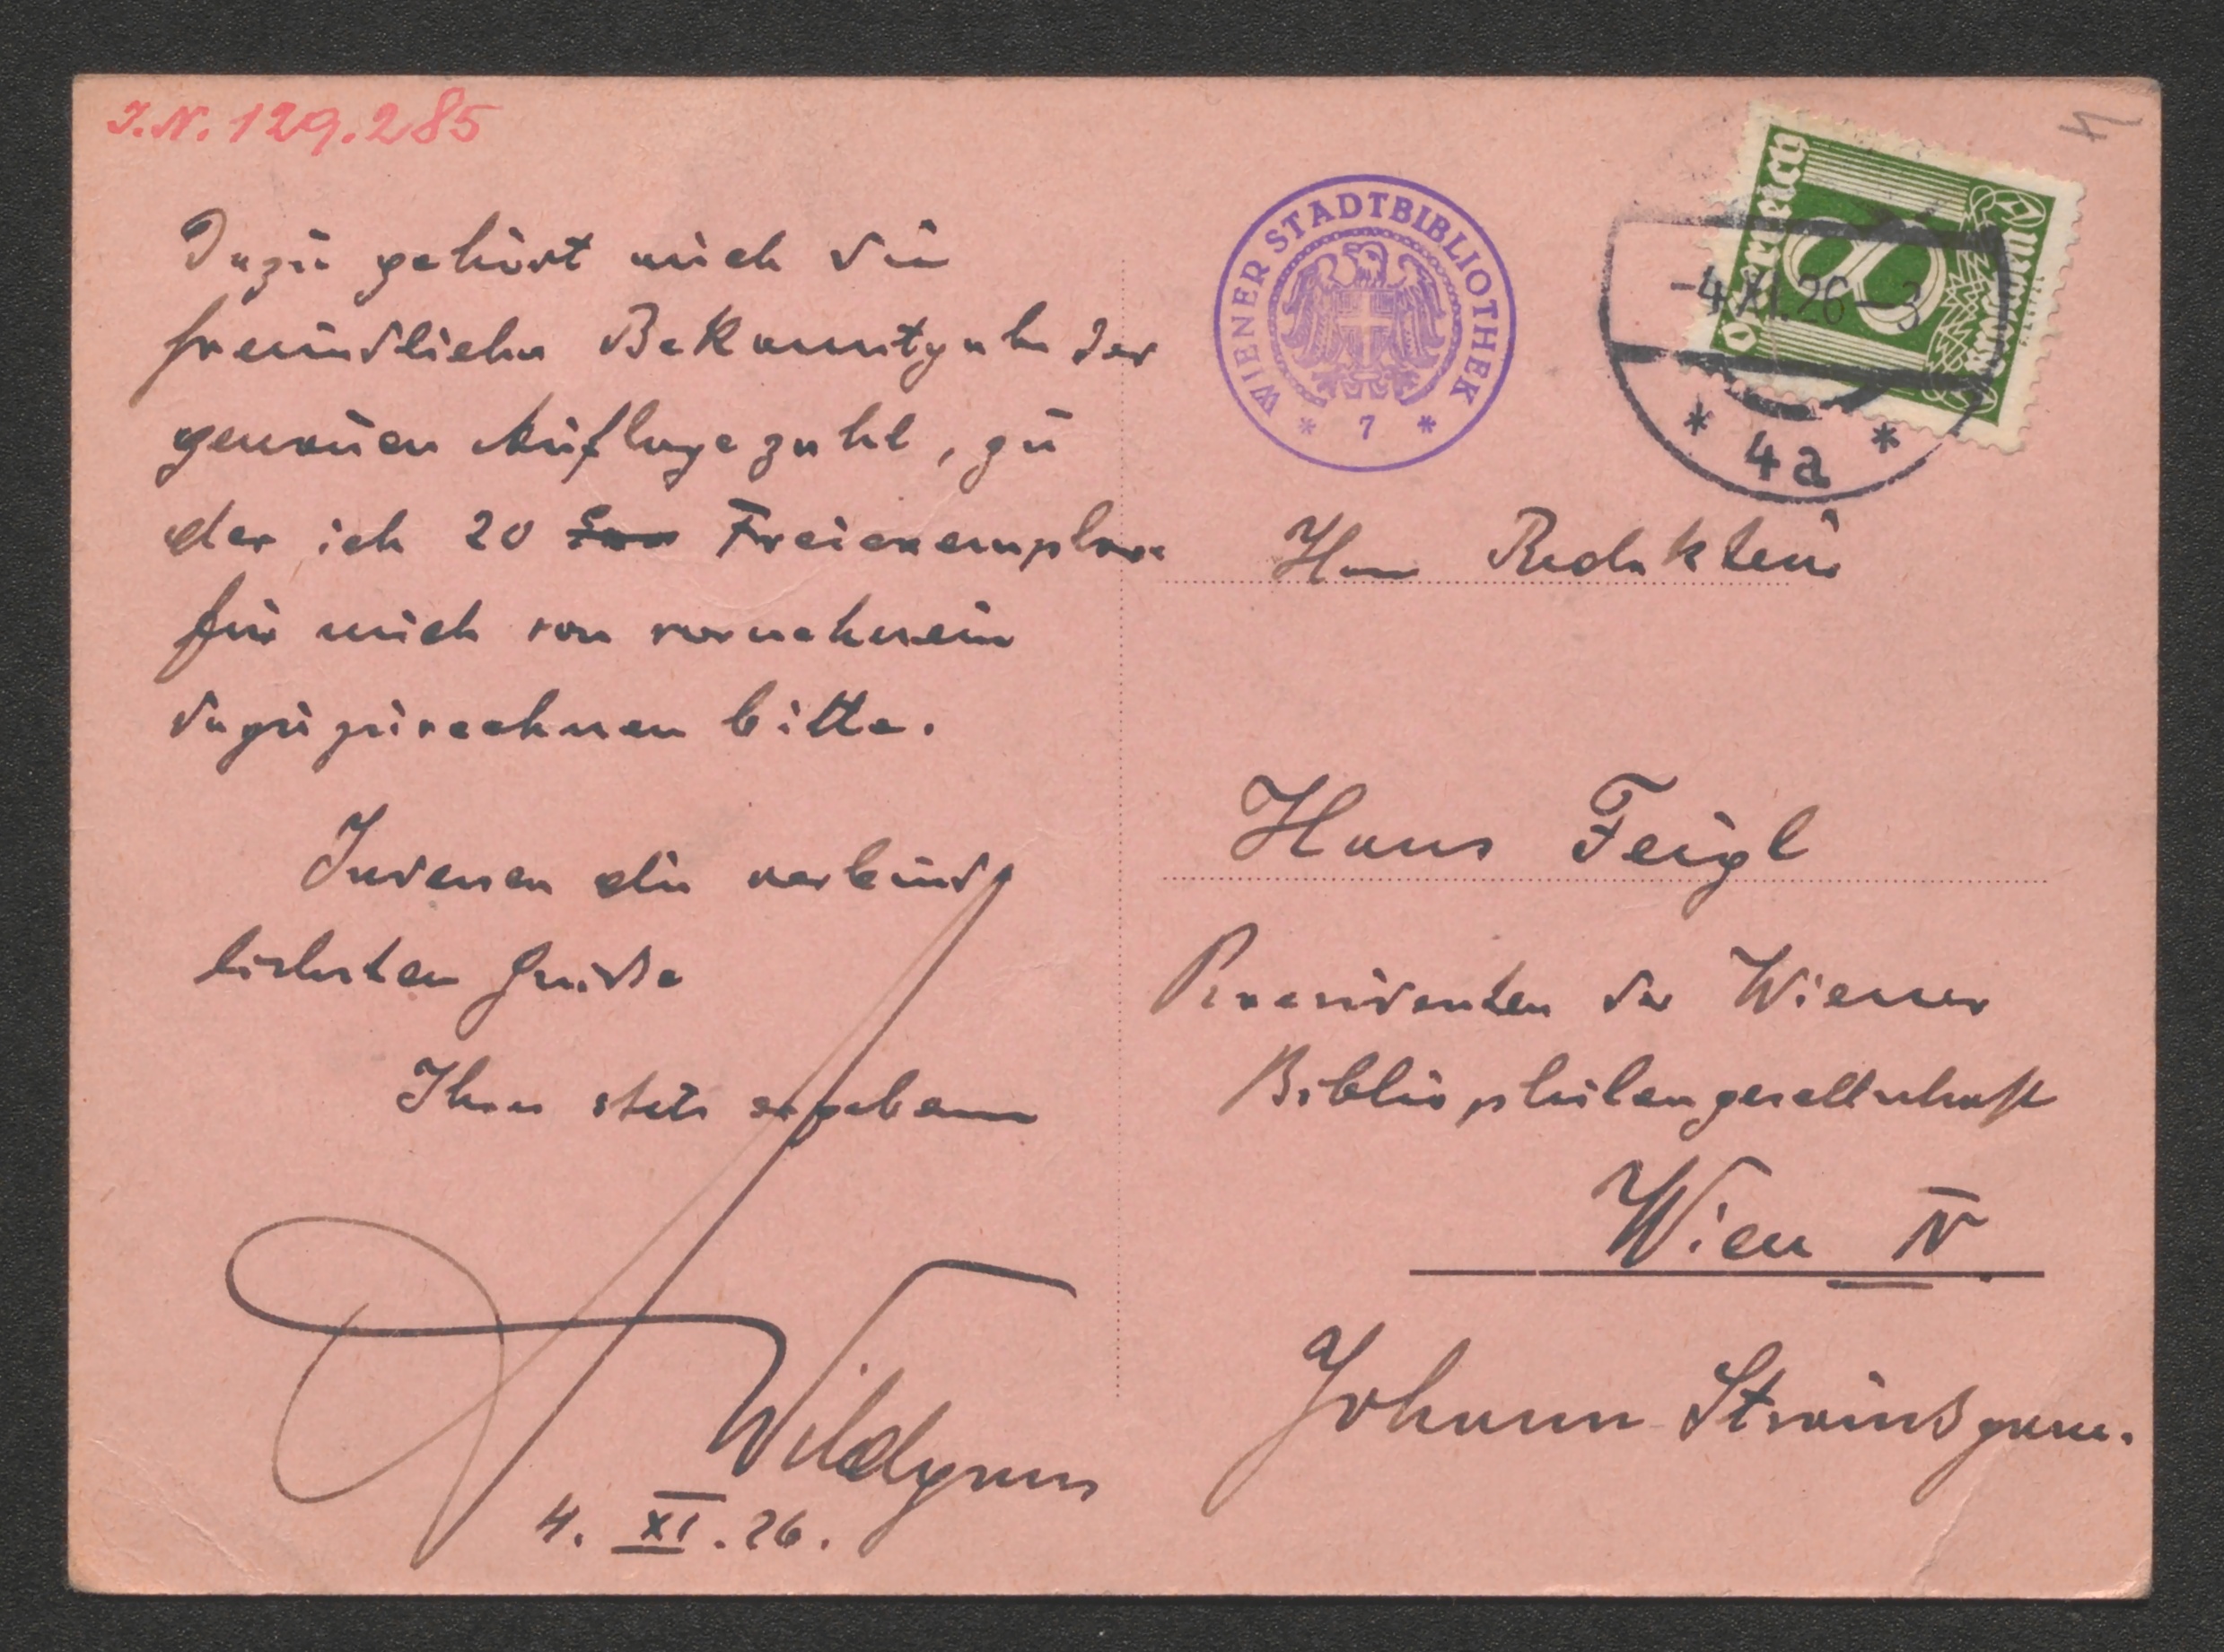 I.N. 129.285
Dazu gehört auch die
freundliche Bekanntgabe der
genauen Auflagezahl, zu
der ich 20 Freiexemplare
für mich von vorneherein
dazuzurechnen bitte.
Indessen die verbind-
lichsten Grüsse
Ihres stets ergebenen
Wildgans
4. XI. 26.
WIENER STADTBIBLIOTHEK
* 7 *
Österreich
8
Groschen
-4.XI.26-3
* 4a *
Herrn Redakteur
Hans Feigl
Praesidenten der Wiener
Bibliophilengesellschaft
Wien IV.
Johann Straußgasse.